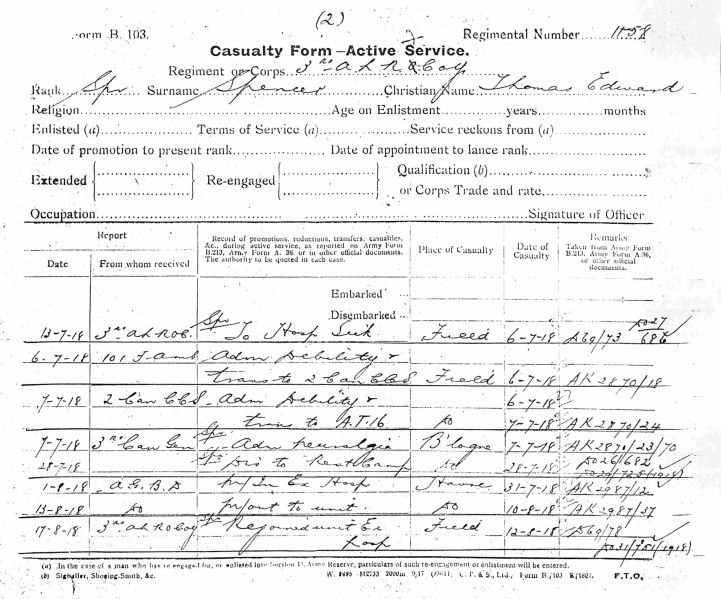 (2)
Form B. 103. Regimental Number 1158
Casualty Form—Active Service.
Regiment or Corps 3rd A L R O Coy
Rank Spr Surname Spencer Christian Name Thomas Edward
Religion Age on Enlistment years months
Enlisted (a) Terms of Service (a) Service reckons from (a)
Date of promotion to present rank Date of appointment to lance rank
Extended Re-engaged Qualification (b)
or Corps Trade and rate
Occupation Signature of Officer
Report
Date From whom received
Record of promotions, reductions, transfers, casualties, &c., during active service, as reported on Army Form B.213, Army Form A. 36, or in other official documents. The authority to be quoted in each case.
Place of Casualty
Date of Casualty
Remarks
Taken from Army Form B.213, Army Form A.36, or other official documents.
Embarked
Disembarked
13-7-18 3rd A L R O C. Spr To Hosp Sick Field 6-7-18 A69/73 DO27/686
6-7-18 101 F amb Adm Debility &
trans to 2 Can CCS Field 6-7-18 AK2870/18
7-7-18 2 Can CCS Adm Debility & 6-7-18
trans to A.T.16 do 7-7-18 AK2870/24
7-7-18 3rd Can Gen Spr Adm Neuralgia B'logne 7-7-18 AK2870/23/70
28-7-18 Spr Dis to Rest Camp do 28-7-18 DO26/682
1-8-18 A.G.B.D M/In Ex Hosp Havre 31-7-18 AK2987/12
13-8-18 do M/out to unit. do 10-8-18 AK2987/37
17-8-18 3rd A L R O Coy Spr Rejoined unit Ex Field 12-8-18 A69/78
Hosp DO31/751/1918)
(a) In the case of a man who has re-engaged for, or enlisted into Section D, Army Reserve, particulars of such re-engagement or enlistment will be entered.
(b) Signaller, Shoeing-Smith, &c. Form B./103 P.T.O.